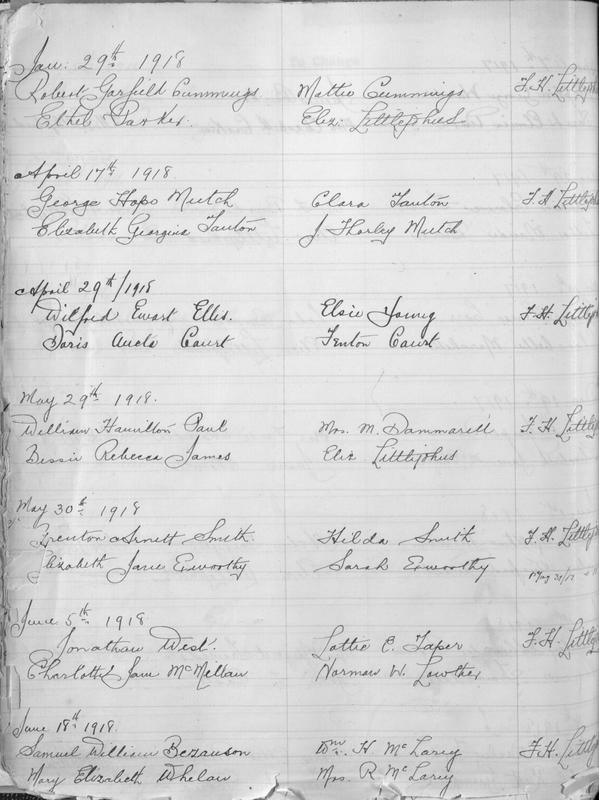 Jan. 29th 1918
Robert Garfield Cummings Mattie Cummings F. H. Littlejoh
Ethel Parker. Eliz. Littlejohns.
April 17th 1918.
George Hops Mutch Clara Tanton F. H. Littlejoh
Elizabeth Georgina Tanton J Thorley Mutch
April 29th/1918
Wilfred Ewart Ellis. Elsie Young F. H. Littlejo
Doris Court Fenton Court
May 29th 1918.
William Hamilton Paul Mrs. M. Dammarell F. H. Littlejo
Bessie Rebecca James Eliz Littlejohns
May 30th 1918
Trenton Arnett Smith. Hilda Smith F. H. Littlejo
Elizabeth Jane Exworthy Sarah Exworthy
June 5th 1918
Jonathan West. Lottie C. Taper F. H. Littlejo
Charlotte Jane McMillan Norman W. Lowther
June 18th 1918.
Samuel William Bezanson Wm. H McLarey F. H. Littl
Mary Elizabeth Whelan Mrs. R McLarey